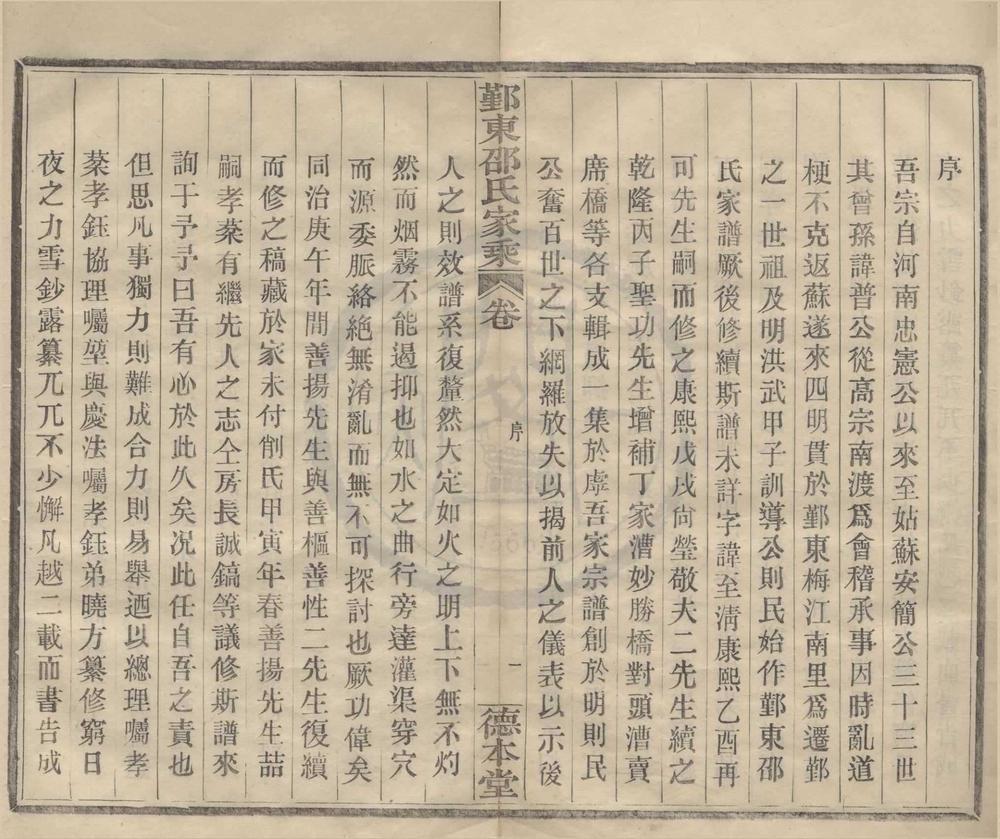 序
吾宗自河南忠憲公以來至姑蘇安簡公三十三世
其曾孫諱普公從高宗南渡爲會稽承事因時亂道
梗不克返蘇遂來四明貫於鄞東梅江南里爲遷鄞
之一世祖及明洪武甲子訓導公則民始作鄞東邵
氏家譜厥後修續斯譜未詳字諱至淸康熙乙酉再
可先生嗣而修之康熙戊戌尙瑩敬夫二先生續之
乾隆丙子聖功先生增補丁家漕妙勝橋對頭漕賣
席橋等各支輯成一集於虖吾家宗譜創於明則民
公奮百世之下網羅放失以揭前人之儀表以示後
鄞東邵氏家乘
卷
序
一
德本堂
人之則效譜系復釐然大定如火之明上下無不灼
然而烟霧不能遏抑也如水之曲行旁達灌渠穿穴
而源委脈絡絶無淆亂而無不可探討也厥功偉矣
同治庚午年間善揚先生與善樞善性二先生復續
而修之稿藏於家未付削氏甲寅年春善揚先生喆
嗣孝棻有繼先人之志仝房長誠鎬等議修斯譜來
詢于予予曰吾有心於此久矣况此任自吾之責也
但思凡事獨力則難成合力則易舉迺以總理囑孝
棻孝鈺協理囑堃與慶法囑孝鈺弟曉方纂修窮日
夜之力雪鈔露纂兀兀不少懈凡越二載而書告成